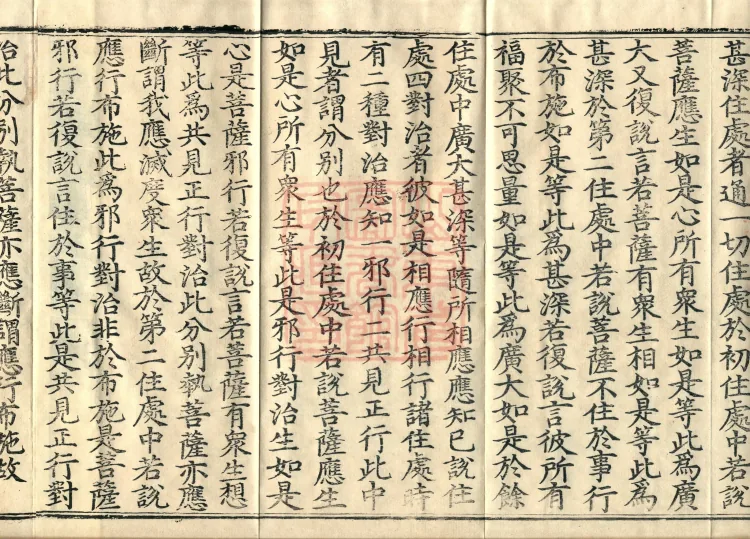 甚深住處者通一切住處於初住處中若說
菩薩應生如是心所有衆生如是等此爲廣
大又復說言若菩薩有衆生相如是等此爲
甚深於第二住處中若說菩薩不住於事行
於布施如是等此爲甚深若復說言彼所有
福聚不可思量如是等此爲廣大如是於餘
住處中廣大甚深等隨所相應應知已說住
處四對治者彼如是相應行相行諸住處時
有二種對治應知一邪行二共見正行此中
見者謂分別也於初住處中若說菩薩應生
如是心所有衆生等此是邪行對治生如是
心是菩薩邪行若復說言若菩薩有衆生想
等此爲共見正行對治此分別執菩薩亦應
斷謂我應滅度衆生故於第二住處中若說
應行布施此爲邪行對治非於布施是菩薩
邪行若復說言住於事等此是共見正行對
治此分別執菩薩亦應斷謂應行布施故